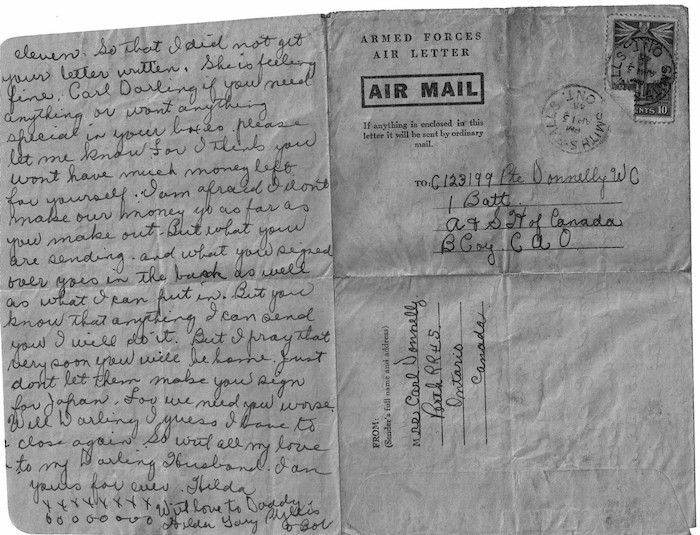 eleven. So that I did not get
your letter written. She is feeling
fine. Carl Darling if you need
anything or want anything
special in your boxes please
let me know for I think you
wont have much money left
for yourself. I am afraid I dont
make our money go as far as
you make out. But what you
are sending. and what you signed
over goes in the bank as well
as what I can put in. But you
know that anything I can send
you I will do it. But I pray that
very soon you will be home. Just
dont let them make you sign
for Japan. For we need you worse.
Well Darling I guess I have to
close again. So with all my love
to my Darling Husband. I am
yours for ever. Hilda
x x x x x x x x With love to Daddy
o o o o o o o o Hilda Gary Phyllis
& Bob
ARMED FORCES
AIR LETTER
AIR MAIL
If anything is enclosed in this
letter it will be sent by ordinary
mail.
SMITHS FALLS ONT.
PM
CTS 10
TO: C123199 Pte Donnelly W C
1 Batt.
A & S H of Canada
B Coy C A O
FROM:
(Sender's full name and address)
Mrs Carl Donnelly
Perth RR#5
Ontario
Canada